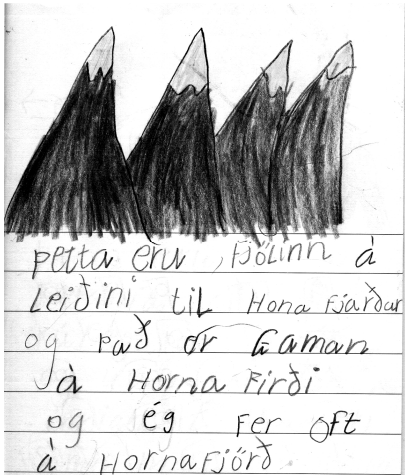 þetta eru Fjölinn á
Leiðini til Hona Fjarðar
og það er Gaman
á Horna Firði
og ég Fer oft
á HornaFjörð